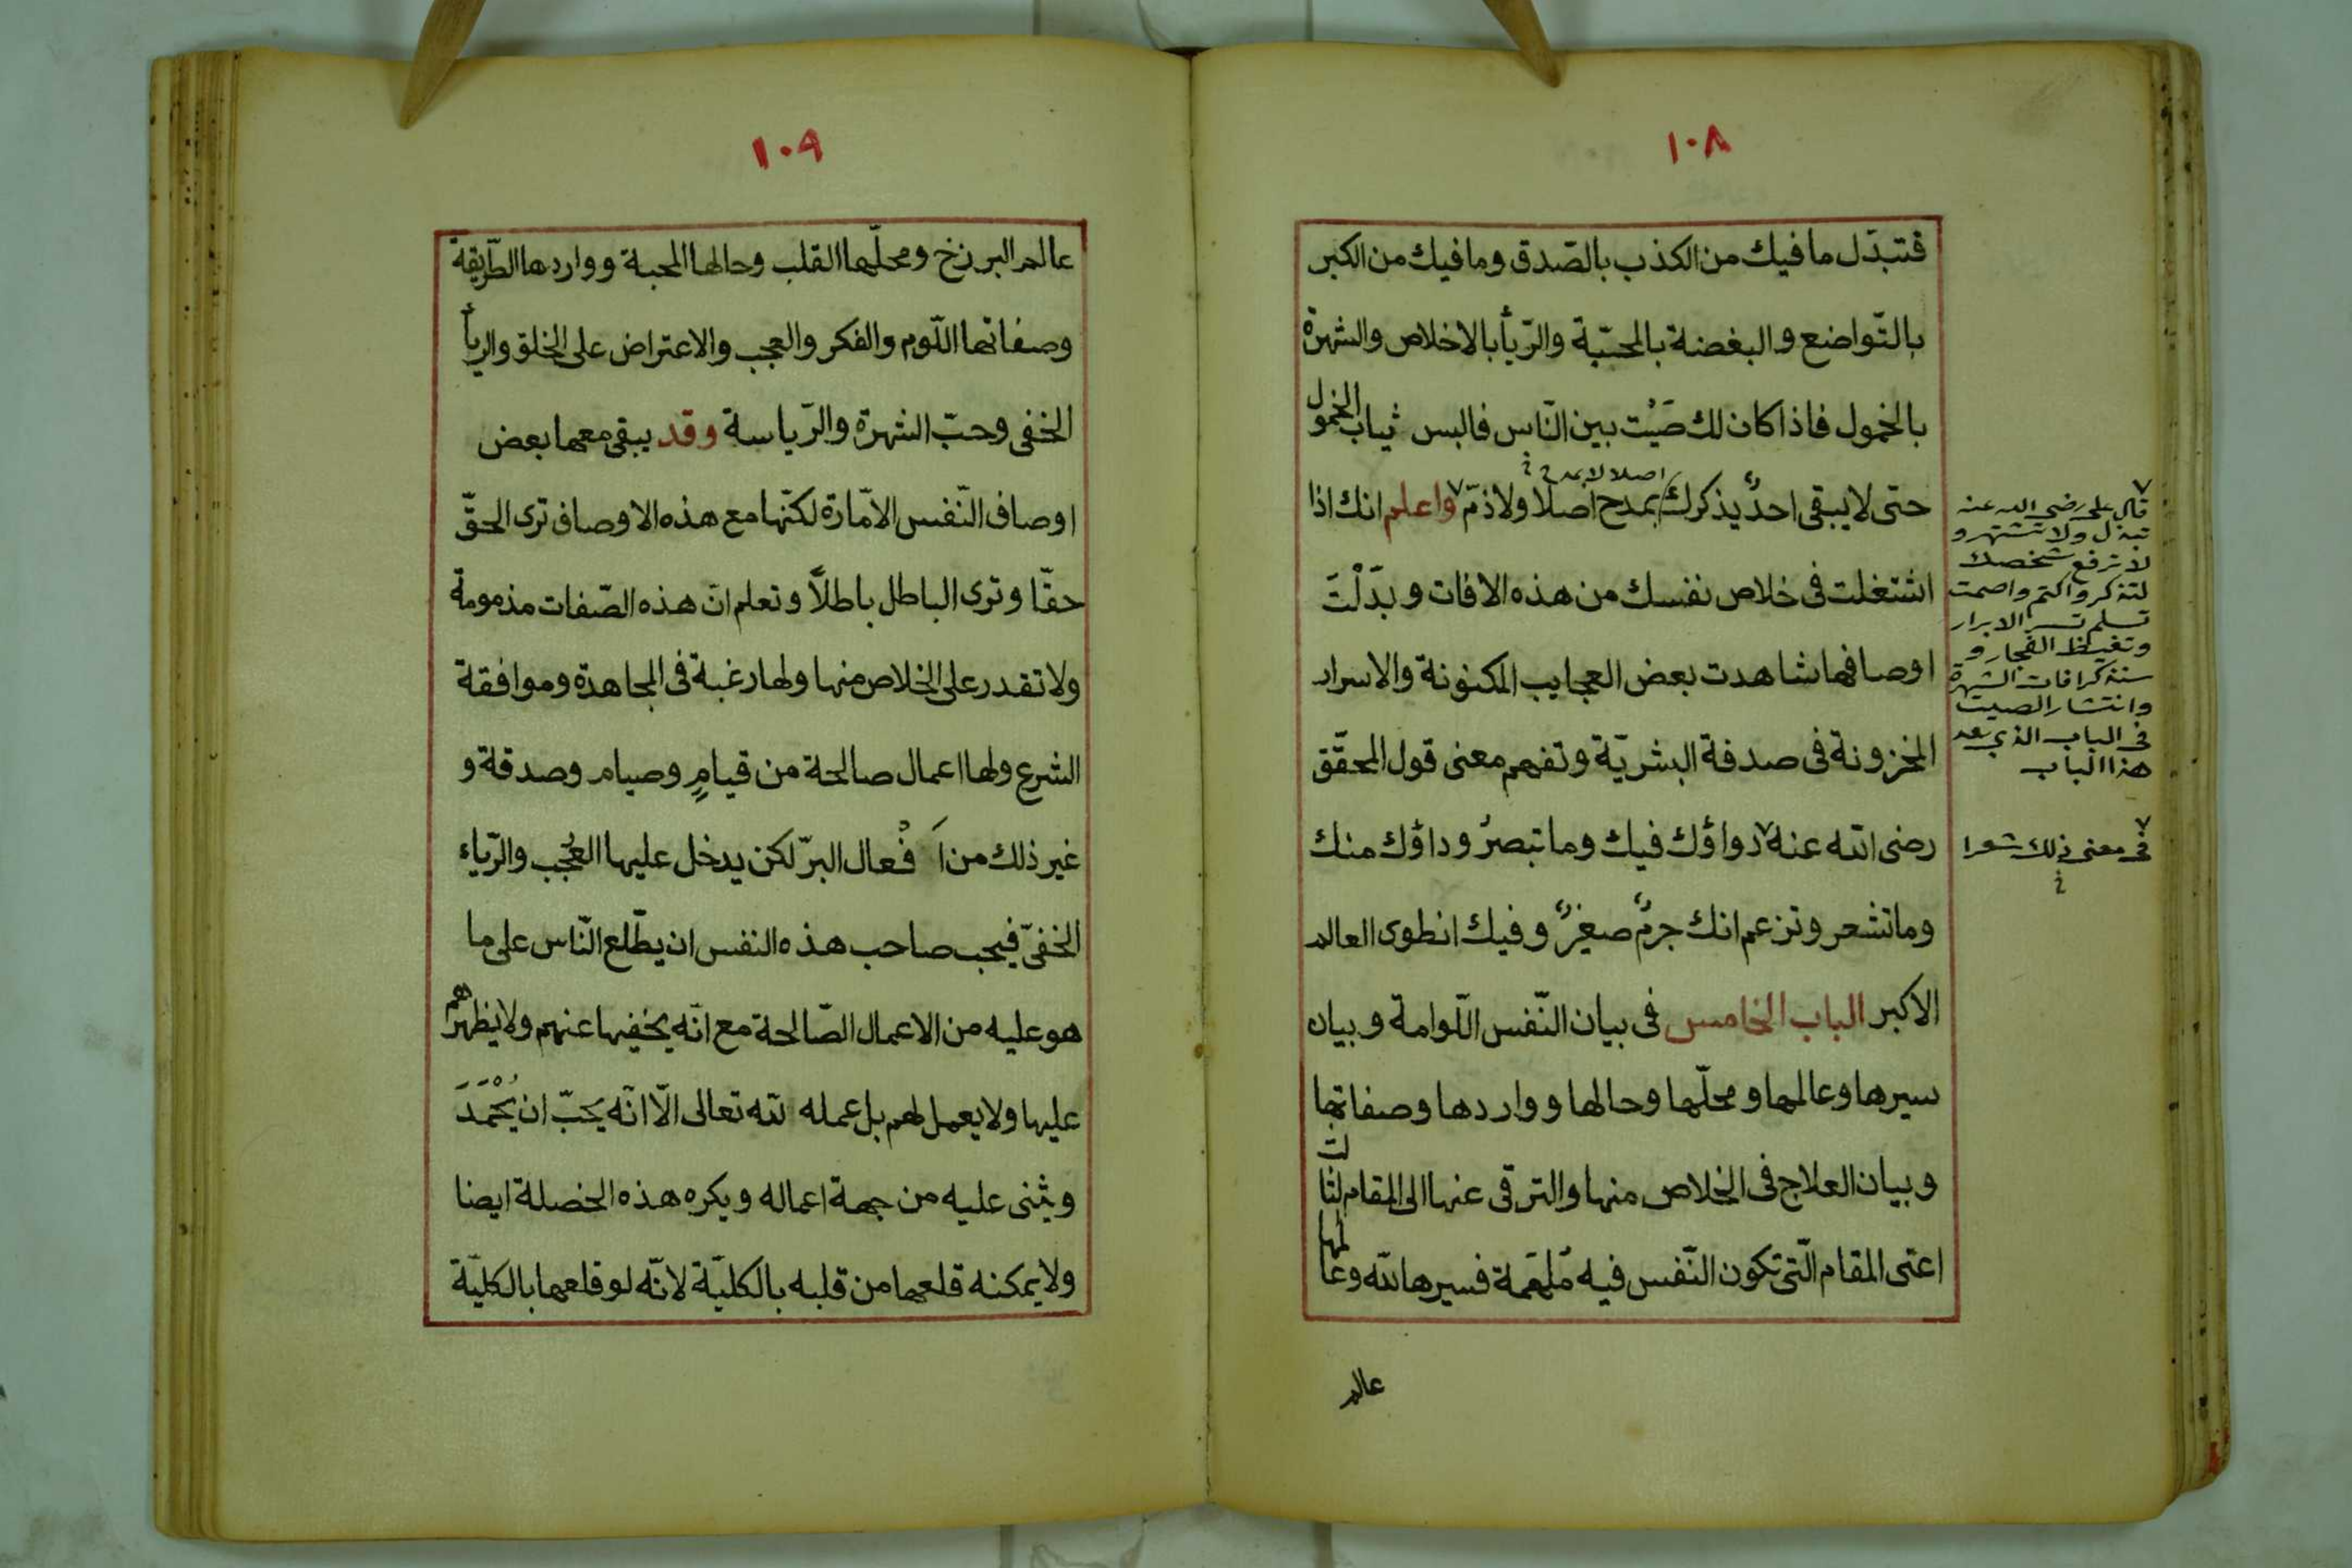 ١٠٨
فتتبدّل ما فيك من الكذب بالصّدق وما فيك من الكبر
بالتّواضع والبغضة بالمحبّة والرّيأ بالاخلاص والشهرة
بالخمول فاذا كان لك صَيْت بين النّاس فالبس ثياب الخمول
اصلا لا بمدح
حتى لا يبقى احدٌ يذكرك بمدح اصلا ولا ذمّ واعلم انك اذا
اشتغلت فى خلاص نفسك من هذه الافات وبدّلْتَ
اوصافها شاهدت بعض العجايب المكنونة والاسرار
المخزونة فى صدفة البشريّة وتفهم معنى قول المحقّق
رضى الله عنه دواؤك فيك وما تبصرُ وداؤك منك
وما تشعر وتزعم انك جرمٌ صغيرٌ وفيك انطوى العالم
الاكبر الباب الخامس فى بيان النّفس اللّوامة وبيان
سيرها وعالمها ومحلّها وحالها وواردها وصفاتها
وبيان العلاج فى الخلاص منها والترقى عنها الى المقام الثالث
اعنى المقام الّتى تكون النّفس فيه مُلهَمة فسيرها لله وعالمها
عالم
قال على رضى الله عنه
تبذل ولا تشتهر و
لا ترفع شخصك
لتذكر واكتم واصمت
تسلم تسر الابرار
وتغيظ الفجار و
ستذكر افات الشهرة
وانتشار الصيت
فى الباب الذي بعد
هذا الباب
فى معنى ذلك شعرا
١٠٩
عالم البرزخ ومحلّها القلب وحالها المحبة وواردها الطّريقة
وصفاتها اللّوم والفكر والعجب والاعتراض على الخلق والريأ
الخفى وحبّ الشهرة والرّياسة وقد يبقى معها بعض
اوصاف النّفس الامّارة لكنّها مع هذه الاوصاف ترى الحقّ
حقّا وترى الباطل باطلاً وتعلم انّ هذه الصّفات مذمومة
ولا تقدر على الخلاص منها ولها رغبة فى المجاهدة وموافقة
الشرع ولها اعمال صالحة من قيامٍ وصيام وصدقة و
غير ذلك من اَفْعال البرّ لكن يدخل عليها العُجب والرّياء
الخفىّ فيحب صاحب هذه النفس ان يطّلع النّاس على ما
هو عليه من الاعمال الصّالحة مع انّه يخفيها عنهم ولا يظهرهم
عليها ولا يعمل لهم بل عمله لله تعالى الّا انّه يحبّ ان يُحْمَدَ
ويثنى عليه من جهة اعماله ويكره هذه الخصلة ايضا
ولا يمكنه قلعها من قلبه بالكليّة لانّه لو قلعها بالكليّة